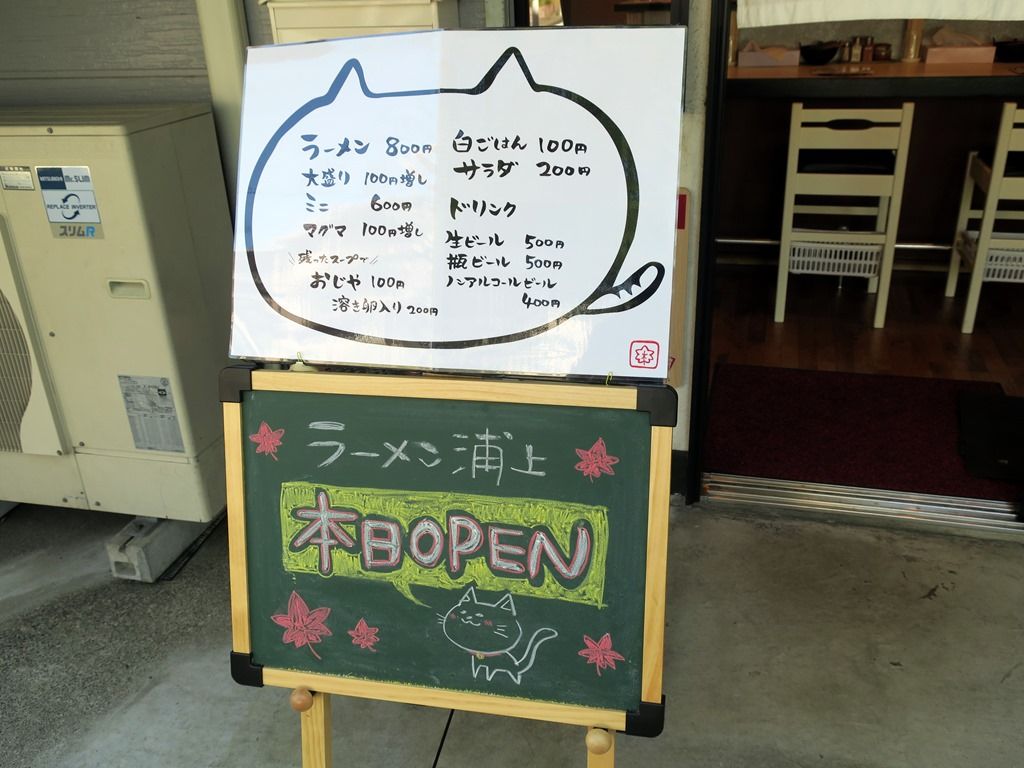 ラーメン 800円
大盛り 100円増し
ミニ 600円
マグマ 100円増し
\\残ったスープで//
おじや 100円
溶き卵入り 200円
白ごはん 100円
サラダ 200円
ドリンク
生ビール 500円
瓶ビール 500円
ノンアルコールビール
400円
ラーメン 浦上
本日OPEN
MITSUBISHI Mr.SLIM
REPLACE INVERTER
スリムR